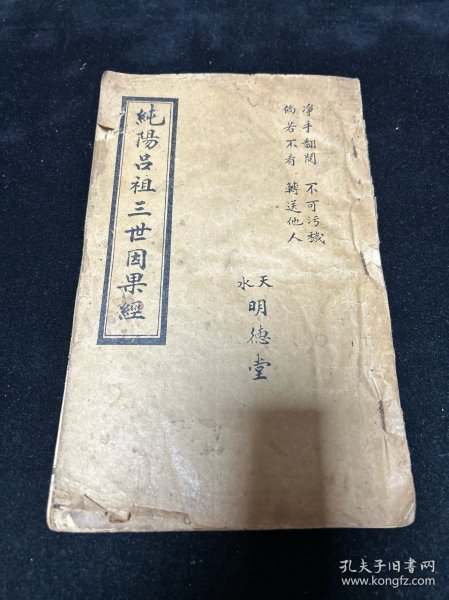 净手翻閱 不可污穢
倘若不看 轉送他人
天水
明德堂
純陽呂祖三世因果經
孔夫子旧书网
www.kongfz.com